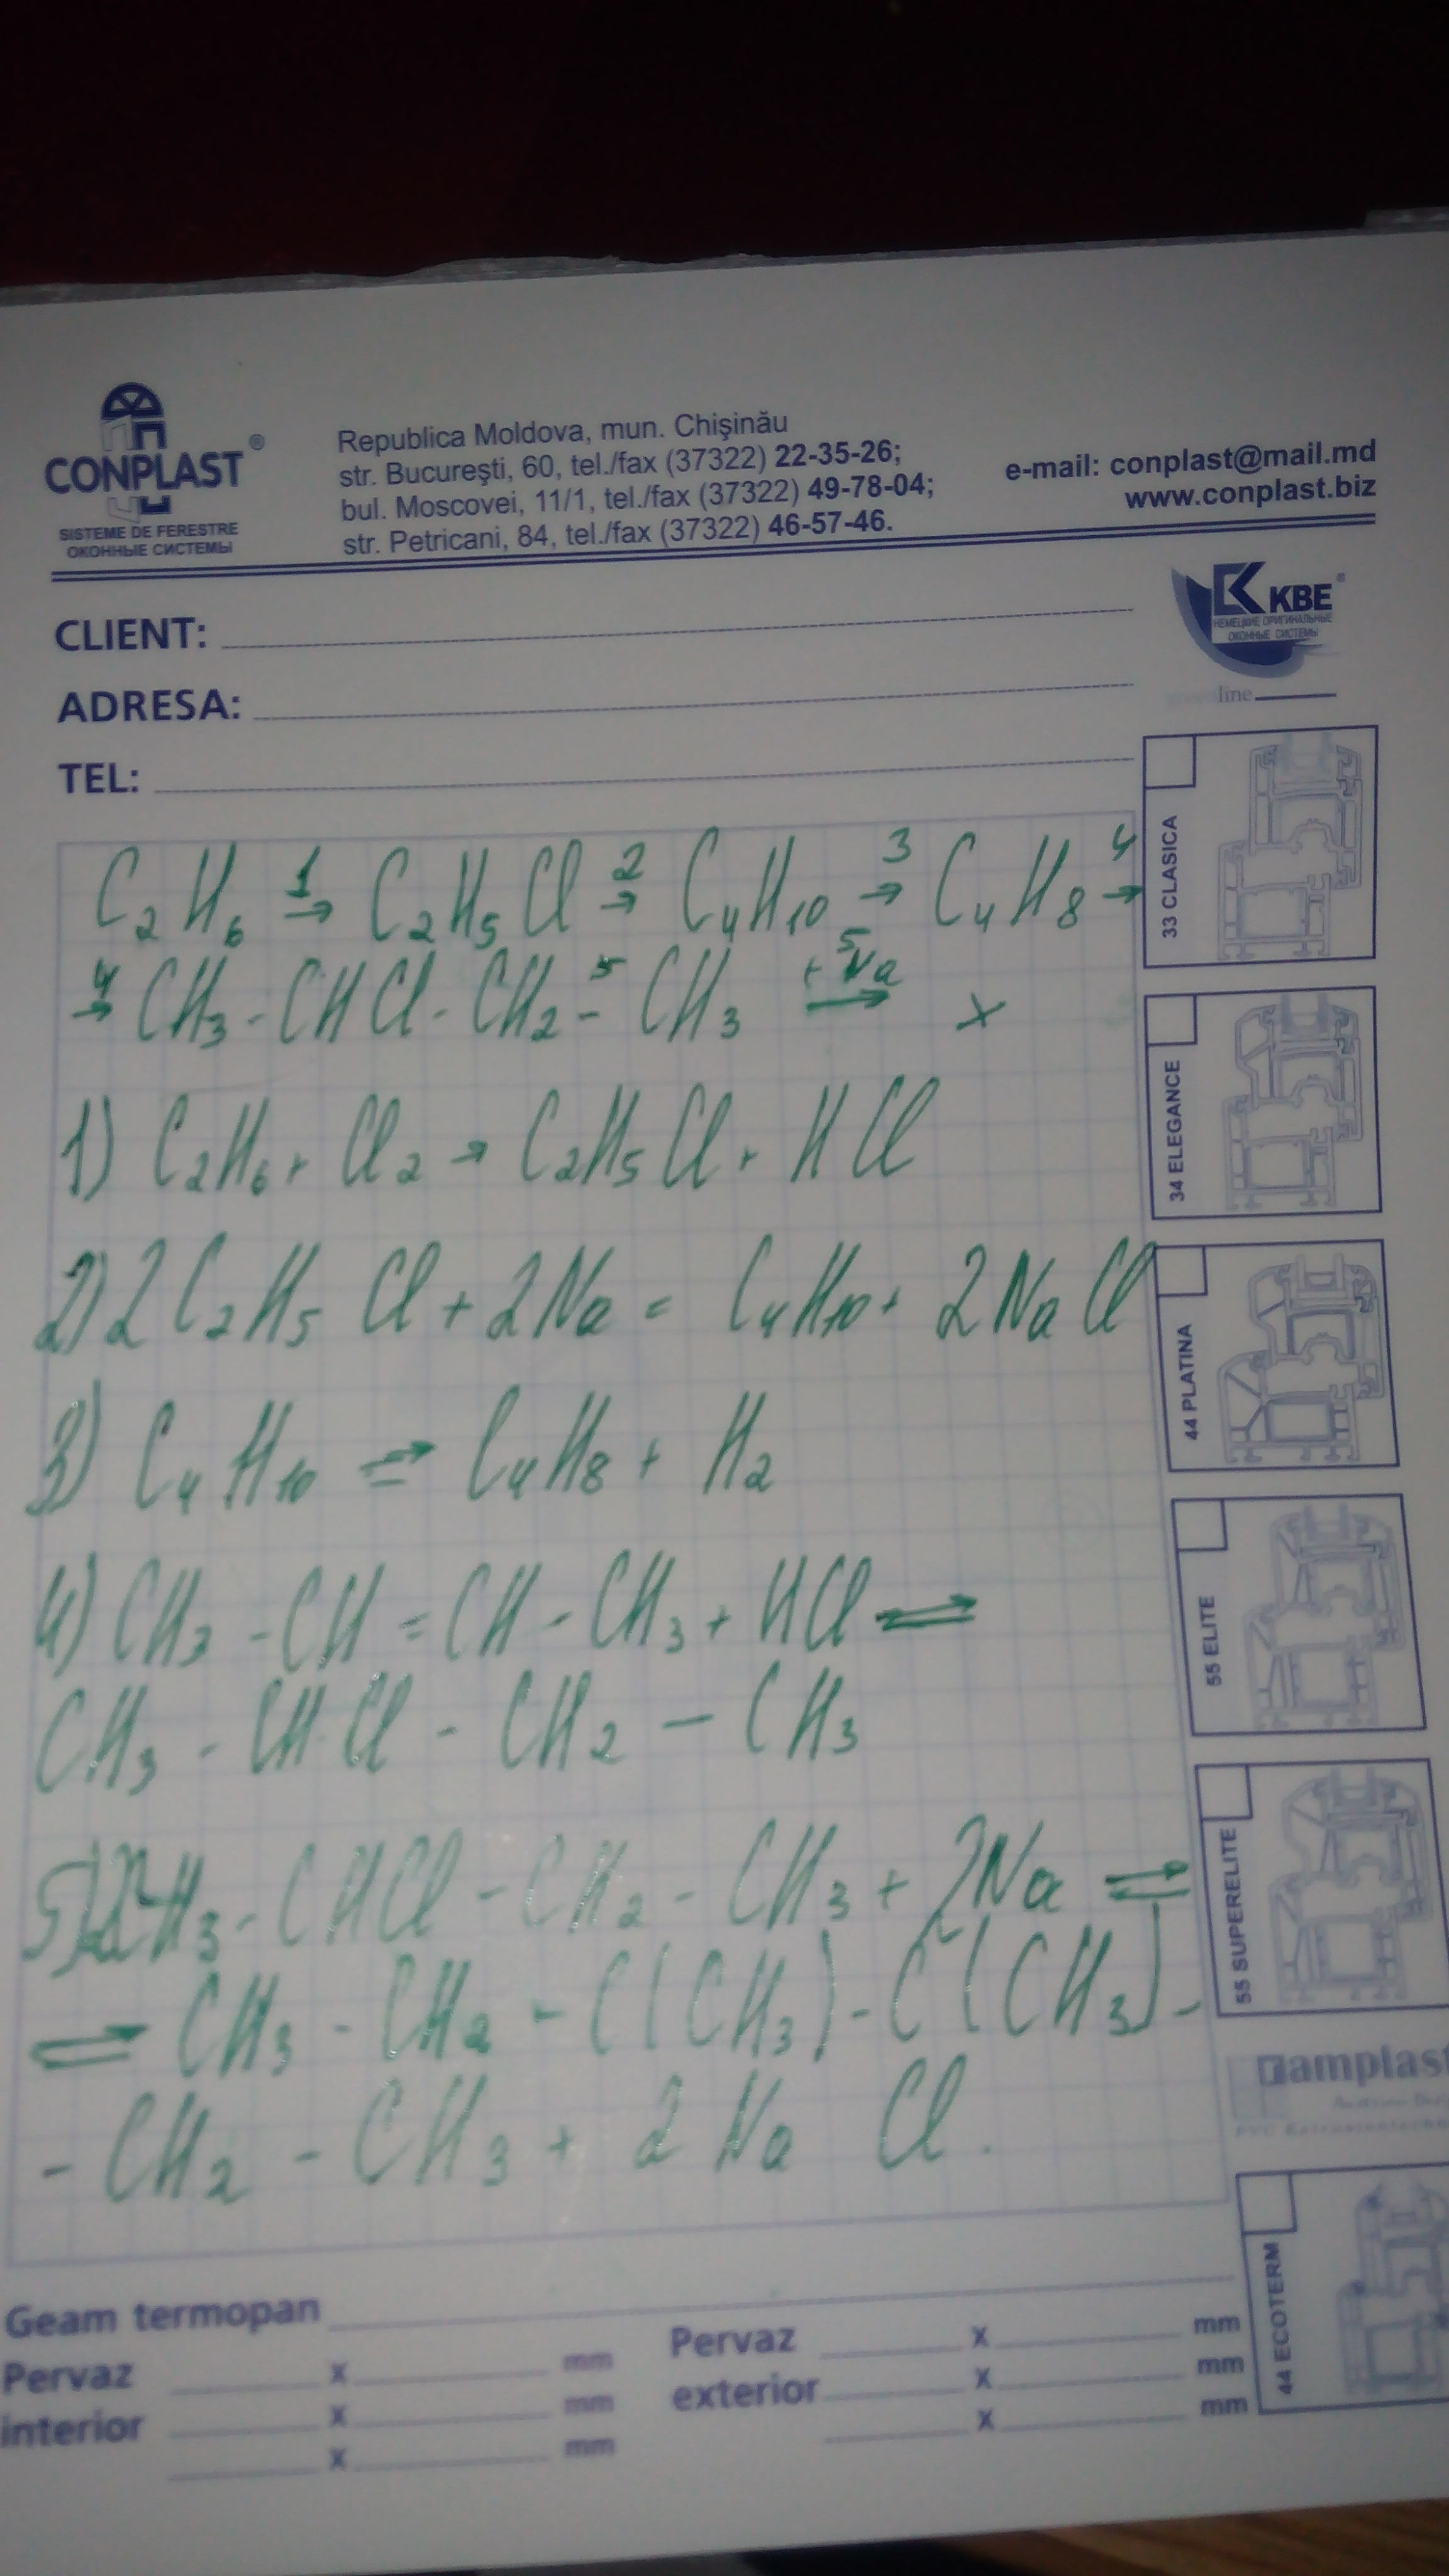 CONPLAST®
SISTEME DE FERESTRE
ОКОННЫЕ СИСТЕМЫ
Republica Moldova, mun. Chişinău
str. Bucureşti, 60, tel./fax (37322) 22-35-26;
bul. Moscovei, 11/1, tel./fax (37322) 49-78-04;
str. Petricani, 84, tel./fax (37322) 46-57-46.
e-mail: conplast@mail.md
www.conplast.biz
KBE®
НЕМЕЦКИЕ ОРИГИНАЛЬНЫЕ
ОКОННЫЕ СИСТЕМЫ
line
CLIENT:
ADRESA:
TEL:
C₂H₆ 1→ C₂H₅Cl 2→ C₄H₁₀ 3→ C₄H₈ 4→
4→ CH₃ - CHCl - CH₂ - CH₃ +5Na→ x
1) C₂H₆ + Cl₂ → C₂H₅Cl + HCl
2) 2C₂H₅Cl + 2Na = C₄H₁₀ + 2NaCl
3) C₄H₁₀ ⇌ C₄H₈ + H₂
4) CH₃ - CH = CH - CH₃ + HCl ⇌
CH₃ - CHCl - CH₂ - CH₃
5) 2CH₃ - CHCl - CH₂ - CH₃ + 2Na ⇌
⇌ CH₃ - CH₂ - C(CH₃) - C(CH₃) -
- CH₂ - CH₃ + 2NaCl.
33 CLASICA
34 ELEGANCE
44 PLATINA
55 ELITE
55 SUPERELITE
amplast
44 ECOTERM
Geam termopan
Pervaz interior x mm
x mm
x mm
Pervaz exterior x mm
x mm
x mm